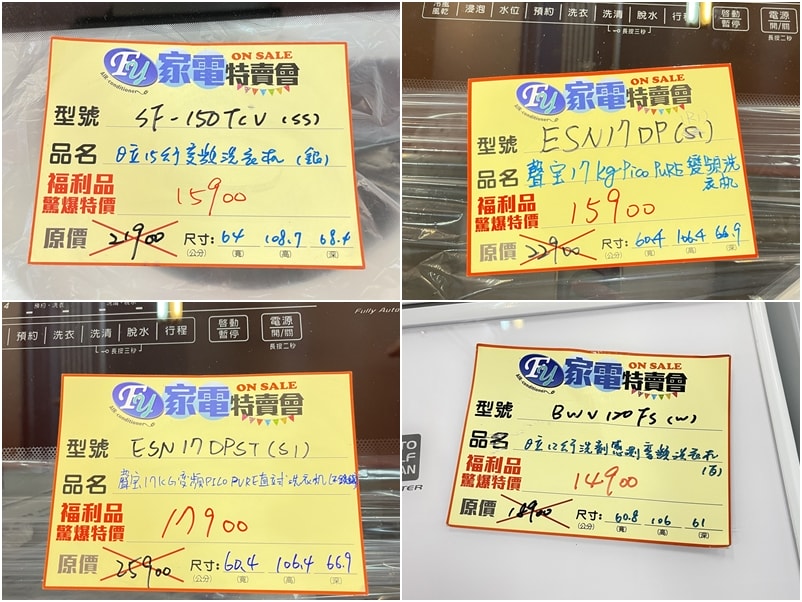 ON SALE
FU 家電特賣會
air conditioner
型號 SF-150TCV (SS)
品名 日立15公斤變頻洗衣机 (銀)
福利品
驚爆特價 15900
原價 21900 尺寸: 64 108.7 68.4
(公分) (寬) (高) (深)
冷風
風乾 浸泡 水位 預約 洗衣 洗清 脫水 行程 啟動
暫停 電源
開/關
長按三秒 長按二秒
ON SALE
FU 家電特賣會
air conditioner
型號 ESN17DP(S1)
品名 聲宝17kg Pico PURE 變頻洗
衣机
福利品
驚爆特價 15900
原價 22900 尺寸: 60.4 106.4 66.9
(公分) (寬) (高) (深)
Fully Auto
預約 洗衣 洗清 脫水 行程 啟動
暫停 電源
開/關
長按三秒 長按二秒
ON SALE
FU 家電特賣會
air conditioner
型號 ESN17DPST(S1)
品名 聲宝17KG變頻PICO PURE直立式洗衣机
福利品
驚爆特價 17900
原價 25900 尺寸: 60.4 106.4 66.9
(公分) (寬) (高) (深)
ON SALE
FU 家電特賣會
air conditioner
型號 BWV120FS(W)
品名 日立12公斤洗劑感測變頻洗衣机
(白)
福利品
驚爆特價 14900
原價 18900 尺寸: 60.8 106 61
(公分) (寬) (高) (深)